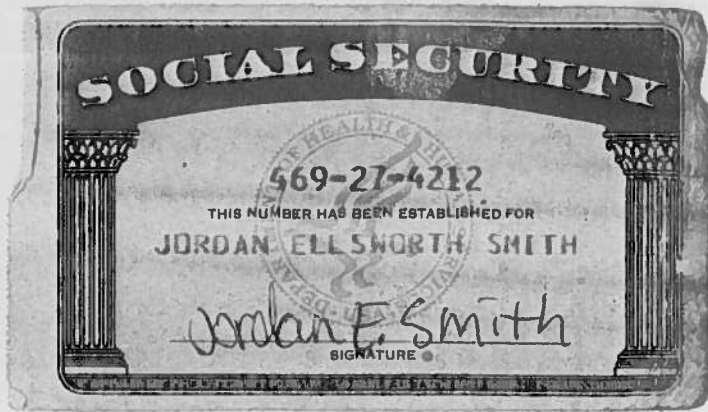 SOCIAL SECURITY
469-27-4212
THIS NUMBER HAS BEEN ESTABLISHED FOR
JORDAN ELLSWORTH SMITH
Jordan E. Smith
SIGNATURE